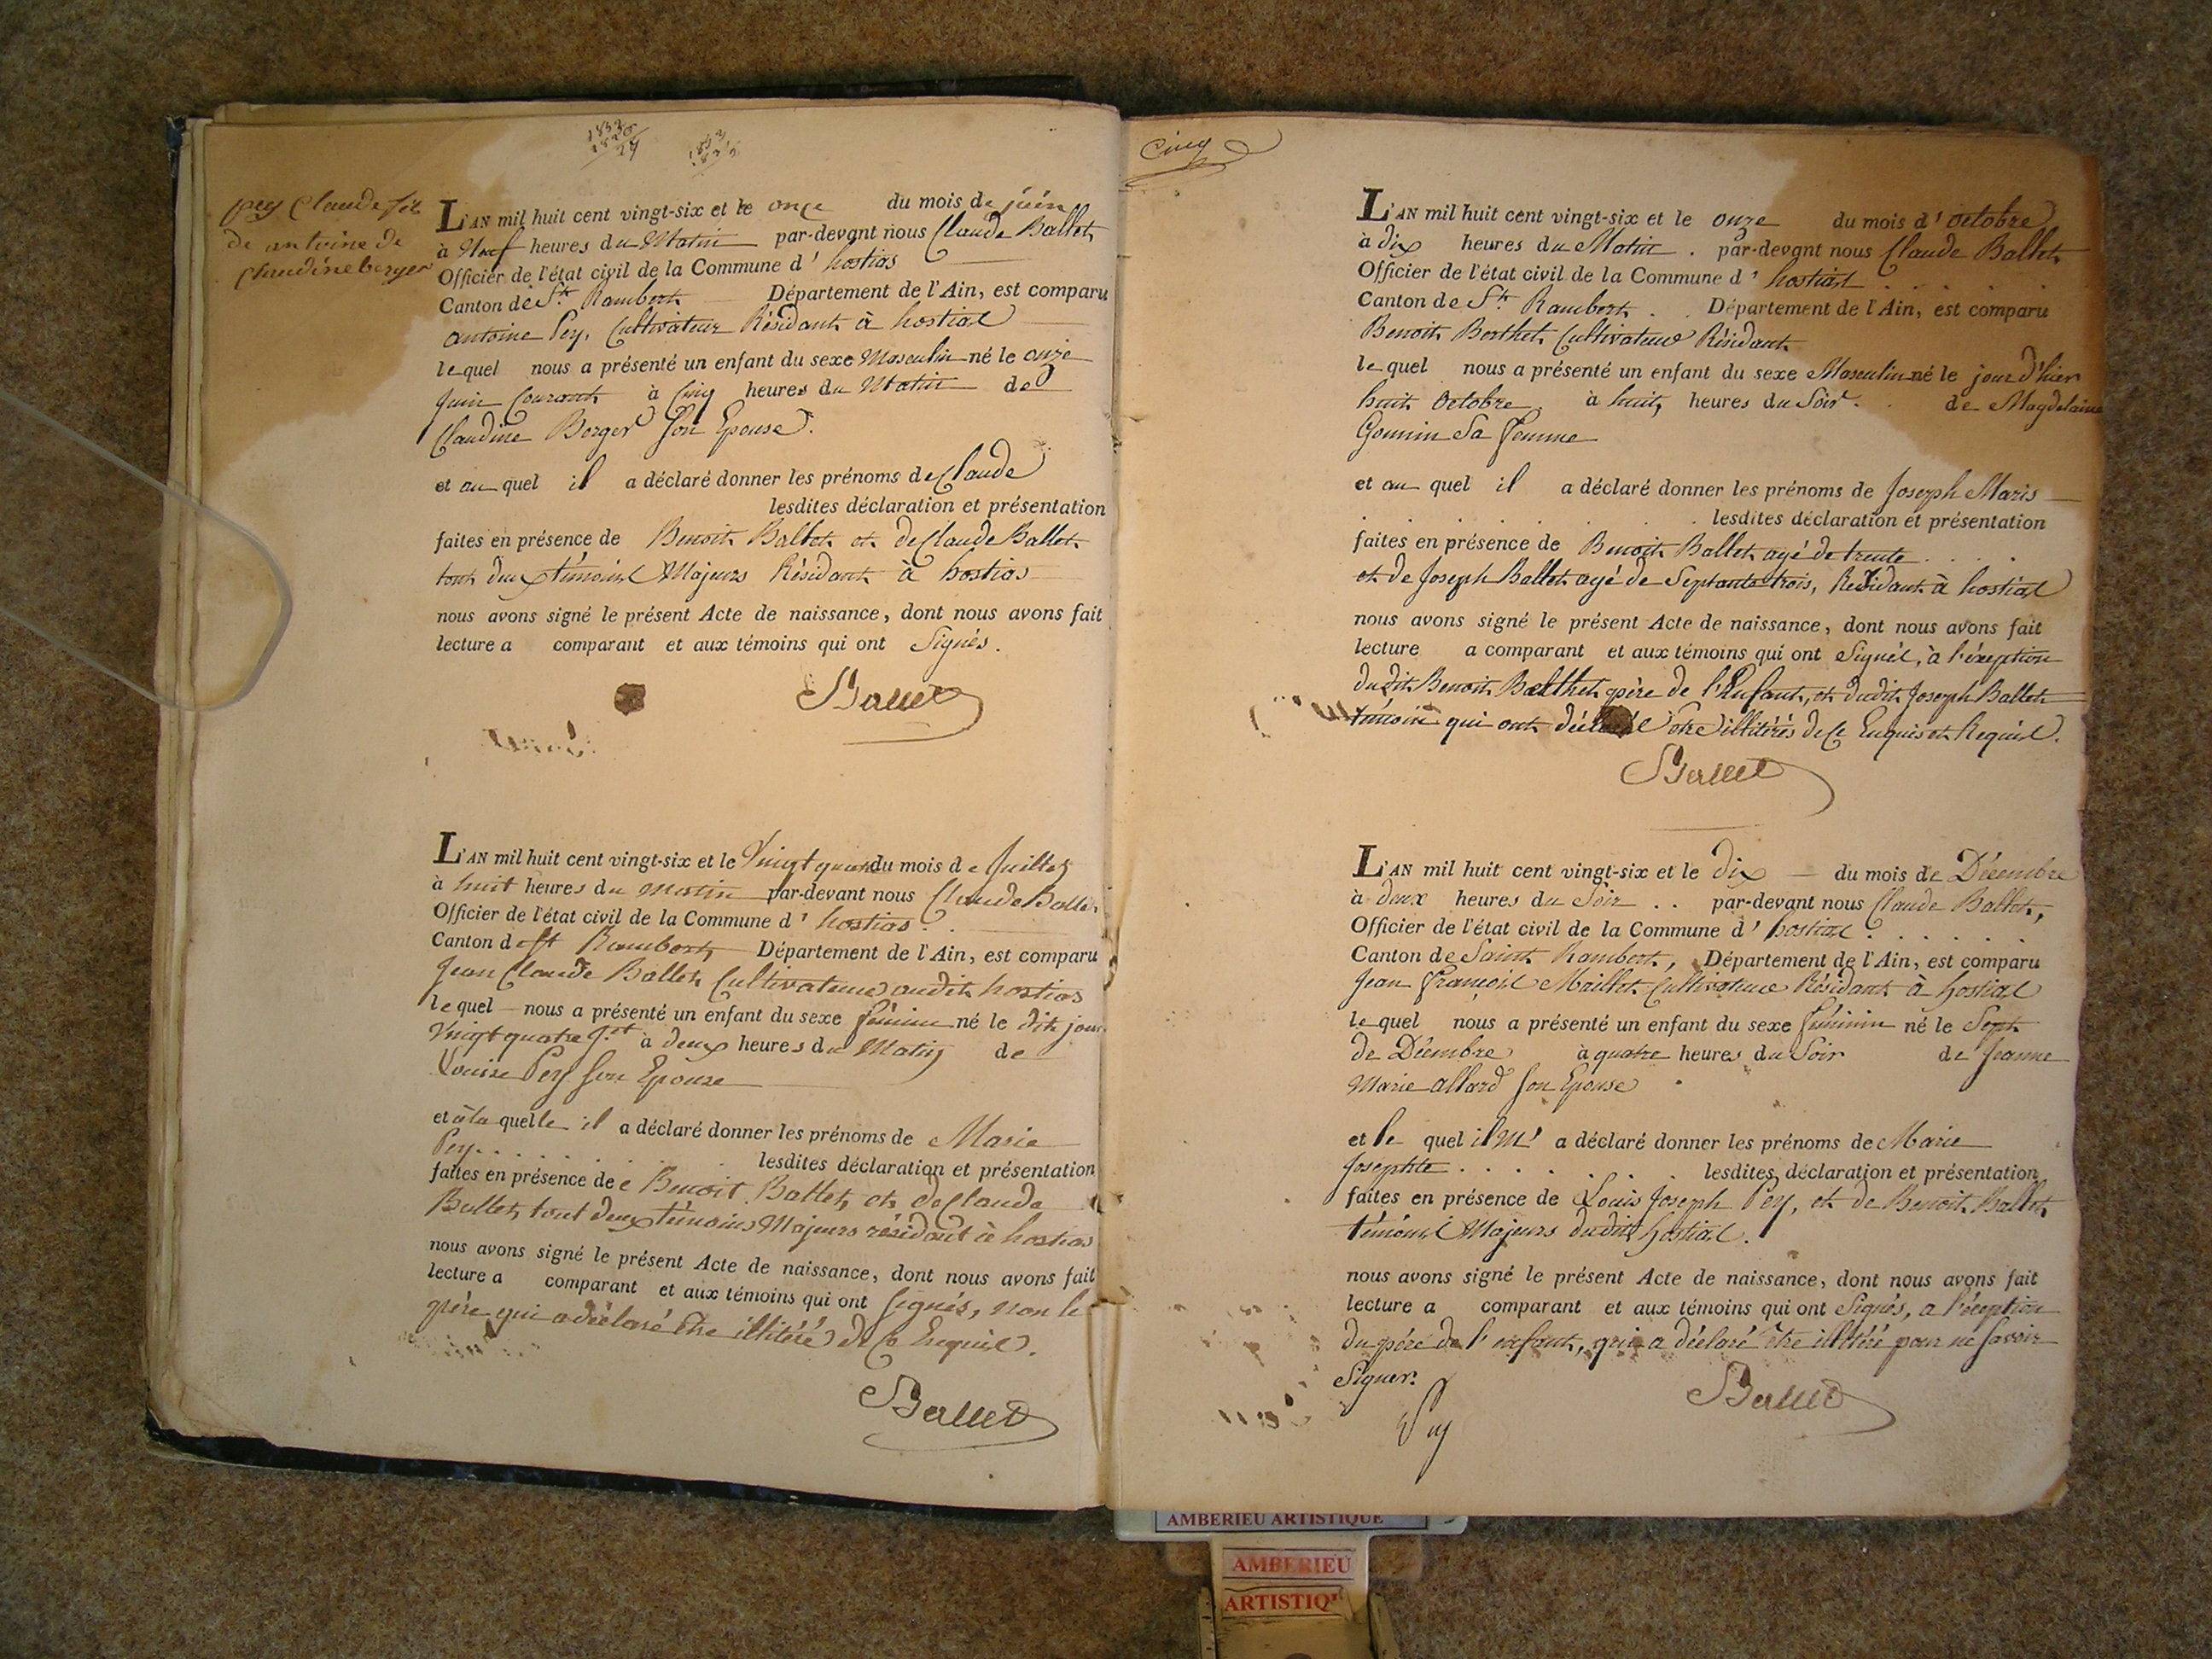 1826
pey Claude fils
de antoine de
Claudine berger
L'AN mil huit cent vingt-six et le onze du mois de juin
à Neuf heures du Matin par-devant nous Claude Ballet
Officier de l'état civil de la Commune d' hostias
Canton de St. Rambert Département de l'Ain, est comparu
antoine Pey, Cultivateur Résidant à hostias
lequel nous a présenté un enfant du sexe Masculin né le onze
Juin Courant à Cinq heures du Matin de
Claudine Berger Son Epouse.
et au quel il a déclaré donner les prénoms de Claude
lesdites déclaration et présentation
faites en présence de Benoit Ballet et de Claude Ballet
tout deux témoins Majeurs Résidant à hostias
nous avons signé le présent Acte de naissance, dont nous avons fait
lecture a comparant et aux témoins qui ont Signés.
Ballet
L'AN mil huit cent vingt-six et le Vingt quatre du mois de Juillet
à huit heures du Matin par-devant nous Claude Ballet
Officier de l'état civil de la Commune d' hostias
Canton de St Rambert Département de l'Ain, est comparu
Jean Claude Ballet Cultivateur audit hostias
lequel nous a présenté un enfant du sexe féminin né le dit jour
Vingt quatre à deux heures du Matin de
Louise Pey Son Epouse
et à la quelle il a déclaré donner les prénoms de Marie
Pey lesdites déclaration et présentation
faites en présence de Benoit Ballet et de Claude
Ballet, tout deux témoins Majeurs résidant à hostias
nous avons signé le présent Acte de naissance, dont nous avons fait
lecture a comparant et aux témoins qui ont Signés, non le
père qui a déclaré être illitéré de ce Enquis.
Ballet
Cinq
L'AN mil huit cent vingt-six et le onze du mois d' octobre
à dix heures du Matin. par-devant nous Claude Ballet
Officier de l'état civil de la Commune d' hostias
Canton de St. Rambert Département de l'Ain, est comparu
Benoit Berthet Cultivateur Résidant
lequel nous a présenté un enfant du sexe Masculin né le jour d'hier
huit Octobre à huit heures du Soir. de Magdelaine
Gounin Sa femme
et au quel il a déclaré donner les prénoms de Joseph Maris
lesdites déclaration et présentation
faites en présence de Benoit Ballet agé de trente
et de Joseph Ballet agé de Septante trois, Residant à hostias
nous avons signé le présent Acte de naissance, dont nous avons fait
lecture a comparant et aux témoins qui ont Signés, à l'éxeption
dudit Benoit Berthet père de l'Enfant, et dudit Joseph Ballet
témoin qui ont déclaré être illitérés de ce Enquis et Requis.
Ballet
L'AN mil huit cent vingt-six et le dix du mois de Décembre
à deux heures du Soir par-devant nous Claude Ballet,
Officier de l'état civil de la Commune d' hostias
Canton de Saint Rambert, Département de l'Ain, est comparu
Jean François Maillet Cultivateur Résidant à hostias
lequel nous a présenté un enfant du sexe féminin né le Sept
de Décembre à quatre heures du Soir de Jeanne
Marie allard Son Epouse
et le quel il a déclaré donner les prénoms de Marie
Josephte lesdites déclaration et présentation
faites en présence de Louis Joseph Pey, et de Benoit Ballet
témoins Majeurs dudit hostias.
nous avons signé le présent Acte de naissance, dont nous avons fait
lecture a comparant et aux témoins qui ont Signés, a l'éxeption
du père de l'enfant, qui a déclaré être illitéré pour ne Savoir
Signer.
Pey
Ballet
AMBERIEU ARTISTIQUE
AMBERIEU
ARTISTIQ